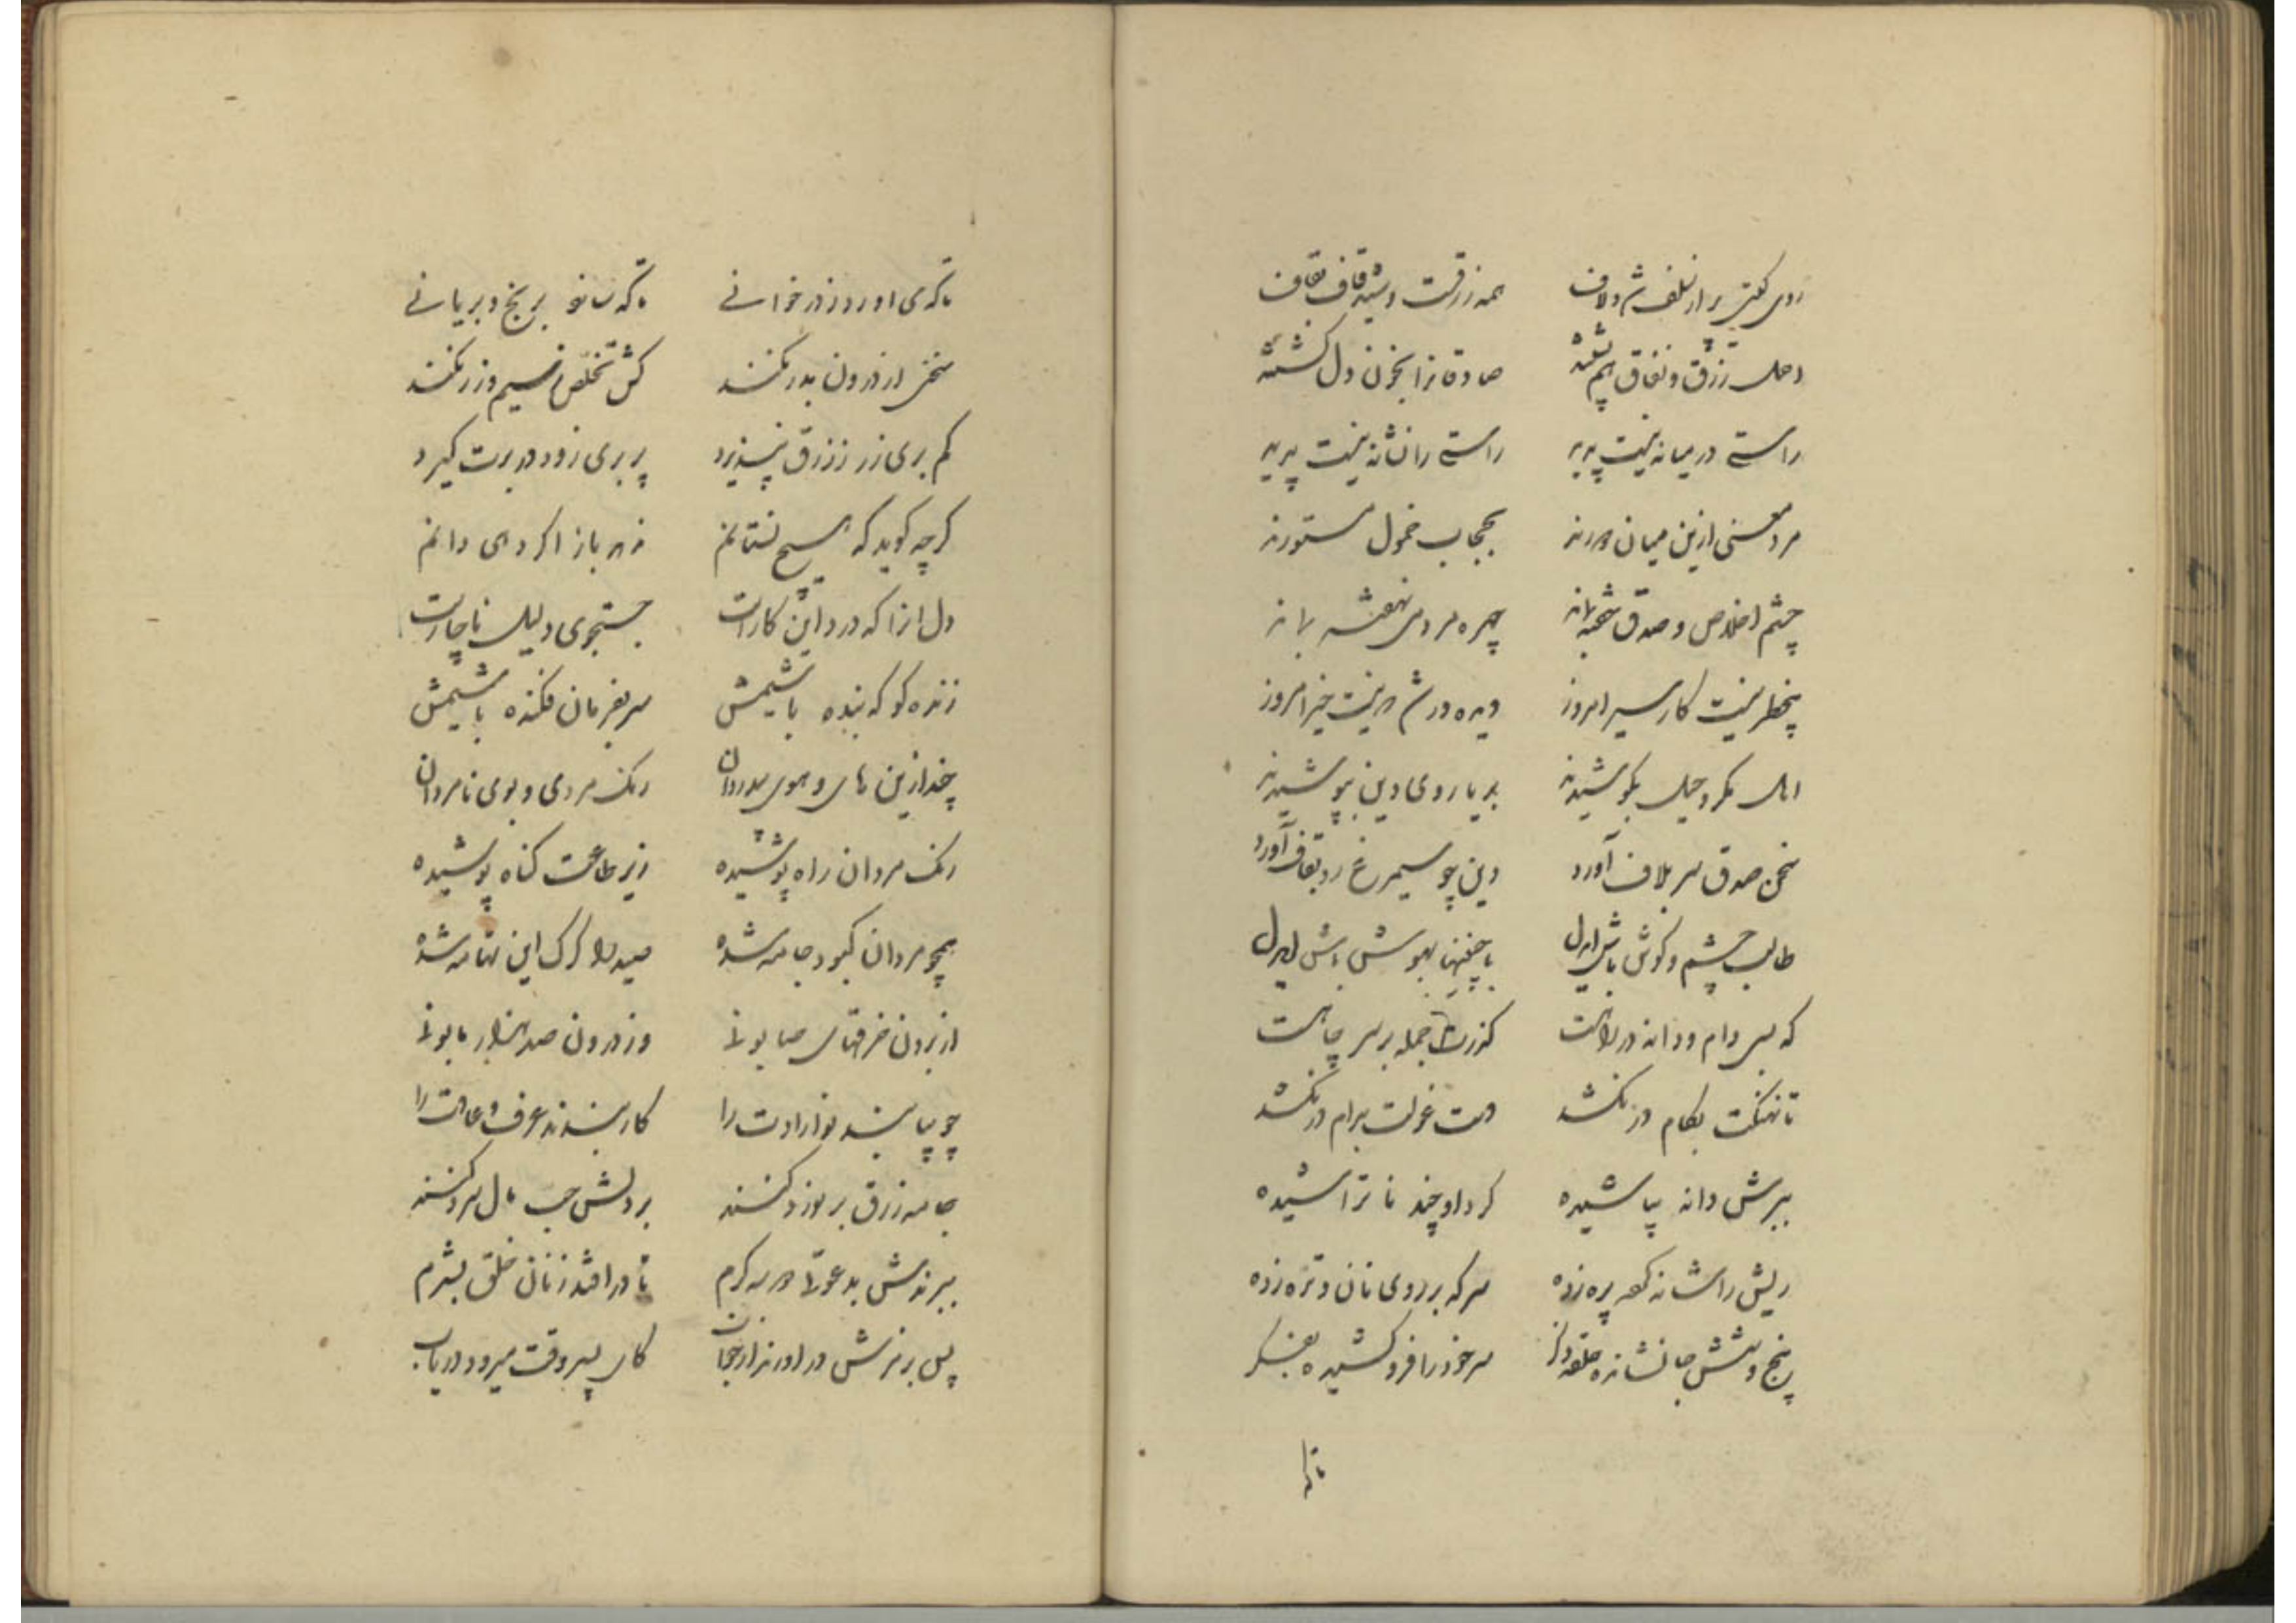 روی گیتی پر از تلف شر و لاف همه زرقست و شید قاف بقاف
اهل زرق و نفاق هم پشته صادقانرا بخون دل کشته
راستی در میانه نیست پدید راستی را نشانه نیست پدید
مرد معنی ازین میان دورند بحجاب خمول مستورند
چشم اخلاص و صدق شخب نهاند چهره مردمی نهفته بماند
بیخطر نیست کار سیر امروز دیده در شهر نیست خیر امروز
اهل مکر و حیل بکوشیدند بریا روی دین بپوشیدند
سخن صدق سر بلاف آورد دین چو سیمرغ رو بقاف آورد
طالب چشم و گوش باش ایدل با چنینها بهوش باش ایدل
که بسی دام و دانه در راهست گذرت جمله بر سر چاهست
تا نهنگت بکام در نکشد دست غولت بدام در نکشد
بر سرش دانه بپاشیده گرد او چند ناتراشیده
ریش را شانه کرده پره زده سرکه بر روی نان و تره زده
پنج و شش جا نشانده حلقه ذکر سر خود را فرو کشیده بفکر
تا که
تا که می آورد ز در خوانی تا که سازد برنج و بریانی
سخنش از درون بدر نکند کش تخلص بسیم و زر نکند
کم بری زر ز زرق نپذیرد پر بری زود در برت گیرد
گرچه گوید که هیچ نستانم زهر باز از کردمی دانم
دل آنرا که درد این کارست جستجوی دلیل ناچارست
زنده کو که بنده باشیمش سر بفرمان فکنده باشیمش
چند ازین های و هوی بیدردان رنگ مردی و بوی نامردان
رنگ مردان راه پوشیده زیر طاعت گناه پوشیده
همچو مردان کبود جامه شده صید را گرگ این نهامه شده
از برون خرقهای صابونی وز درون صد هزار مابونی
چو بپاشند نو ارادت را کار بندند عرف و عادت را
جامه زرق بر تو زد کنند بر دلش حب مال سرد کنند
ببرندش بدعوتی دو سه گرم تا درافتد ز نان خلق بشرم
پس بنرمش در آورند از خواب کای پسر وقت میرود دریاب